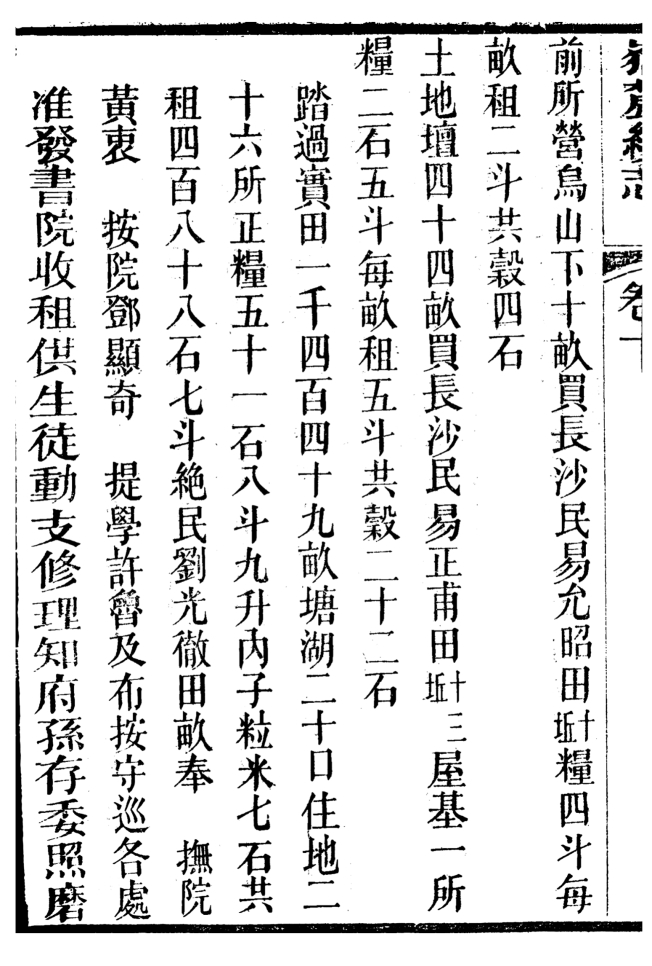 前所營烏山下十畝買長沙民易允昭田十坵糧四斗每
畝租二斗共穀四石
土地壇四十四畝買長沙民易正甫田十三坵屋基一所
糧二石五斗每畝租五斗共穀二十二石
踏過實田一千四百四十九畝塘湖二十口住地二
十六所正糧五十一石八斗九升內子粒米七石共
租四百八十八石七斗絶民劉光徹田畝奉　撫院
黃衷　按院鄧顯奇　提學許魯及布按守巡各處
准發書院收租供生徒動支修理知府孫存委照磨